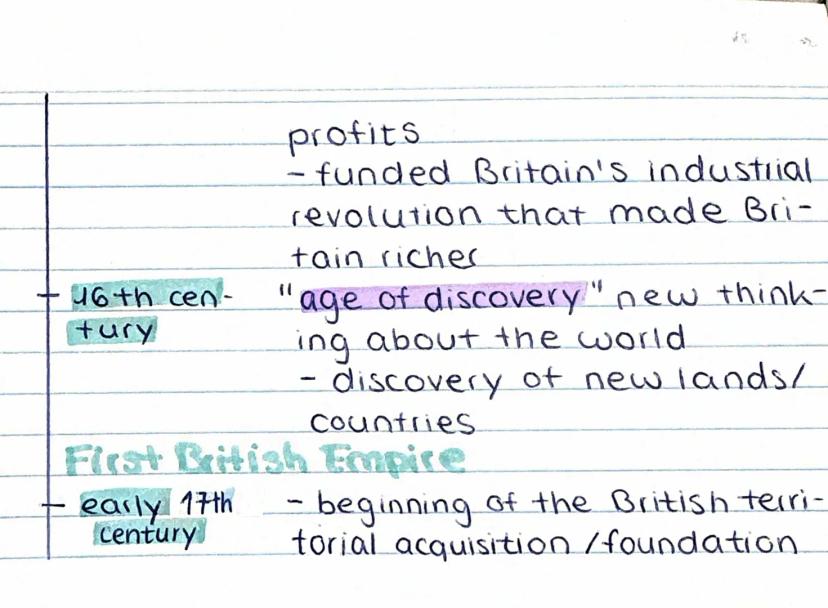 profits
- funded Britain's industrial
revolution that made Bri-
tain richer
16th cen- "age of discovery" new think-
tury ing about the world
- discovery of new lands/
countries
First British Empire
early 17th - beginning of the British terri-
century torial acquisition / foundation